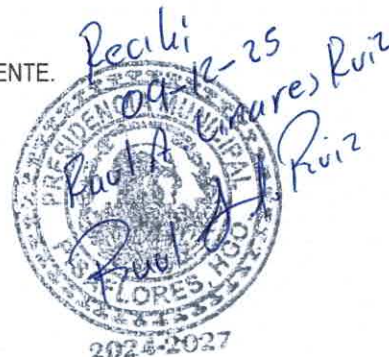 ENTE.
Recibi
09-12-25
Raul A Linares Ruiz
Raul A. Ruiz
PRESIDENCIA MUNICIPAL
PISAFLORES, HGO.
2024-2027